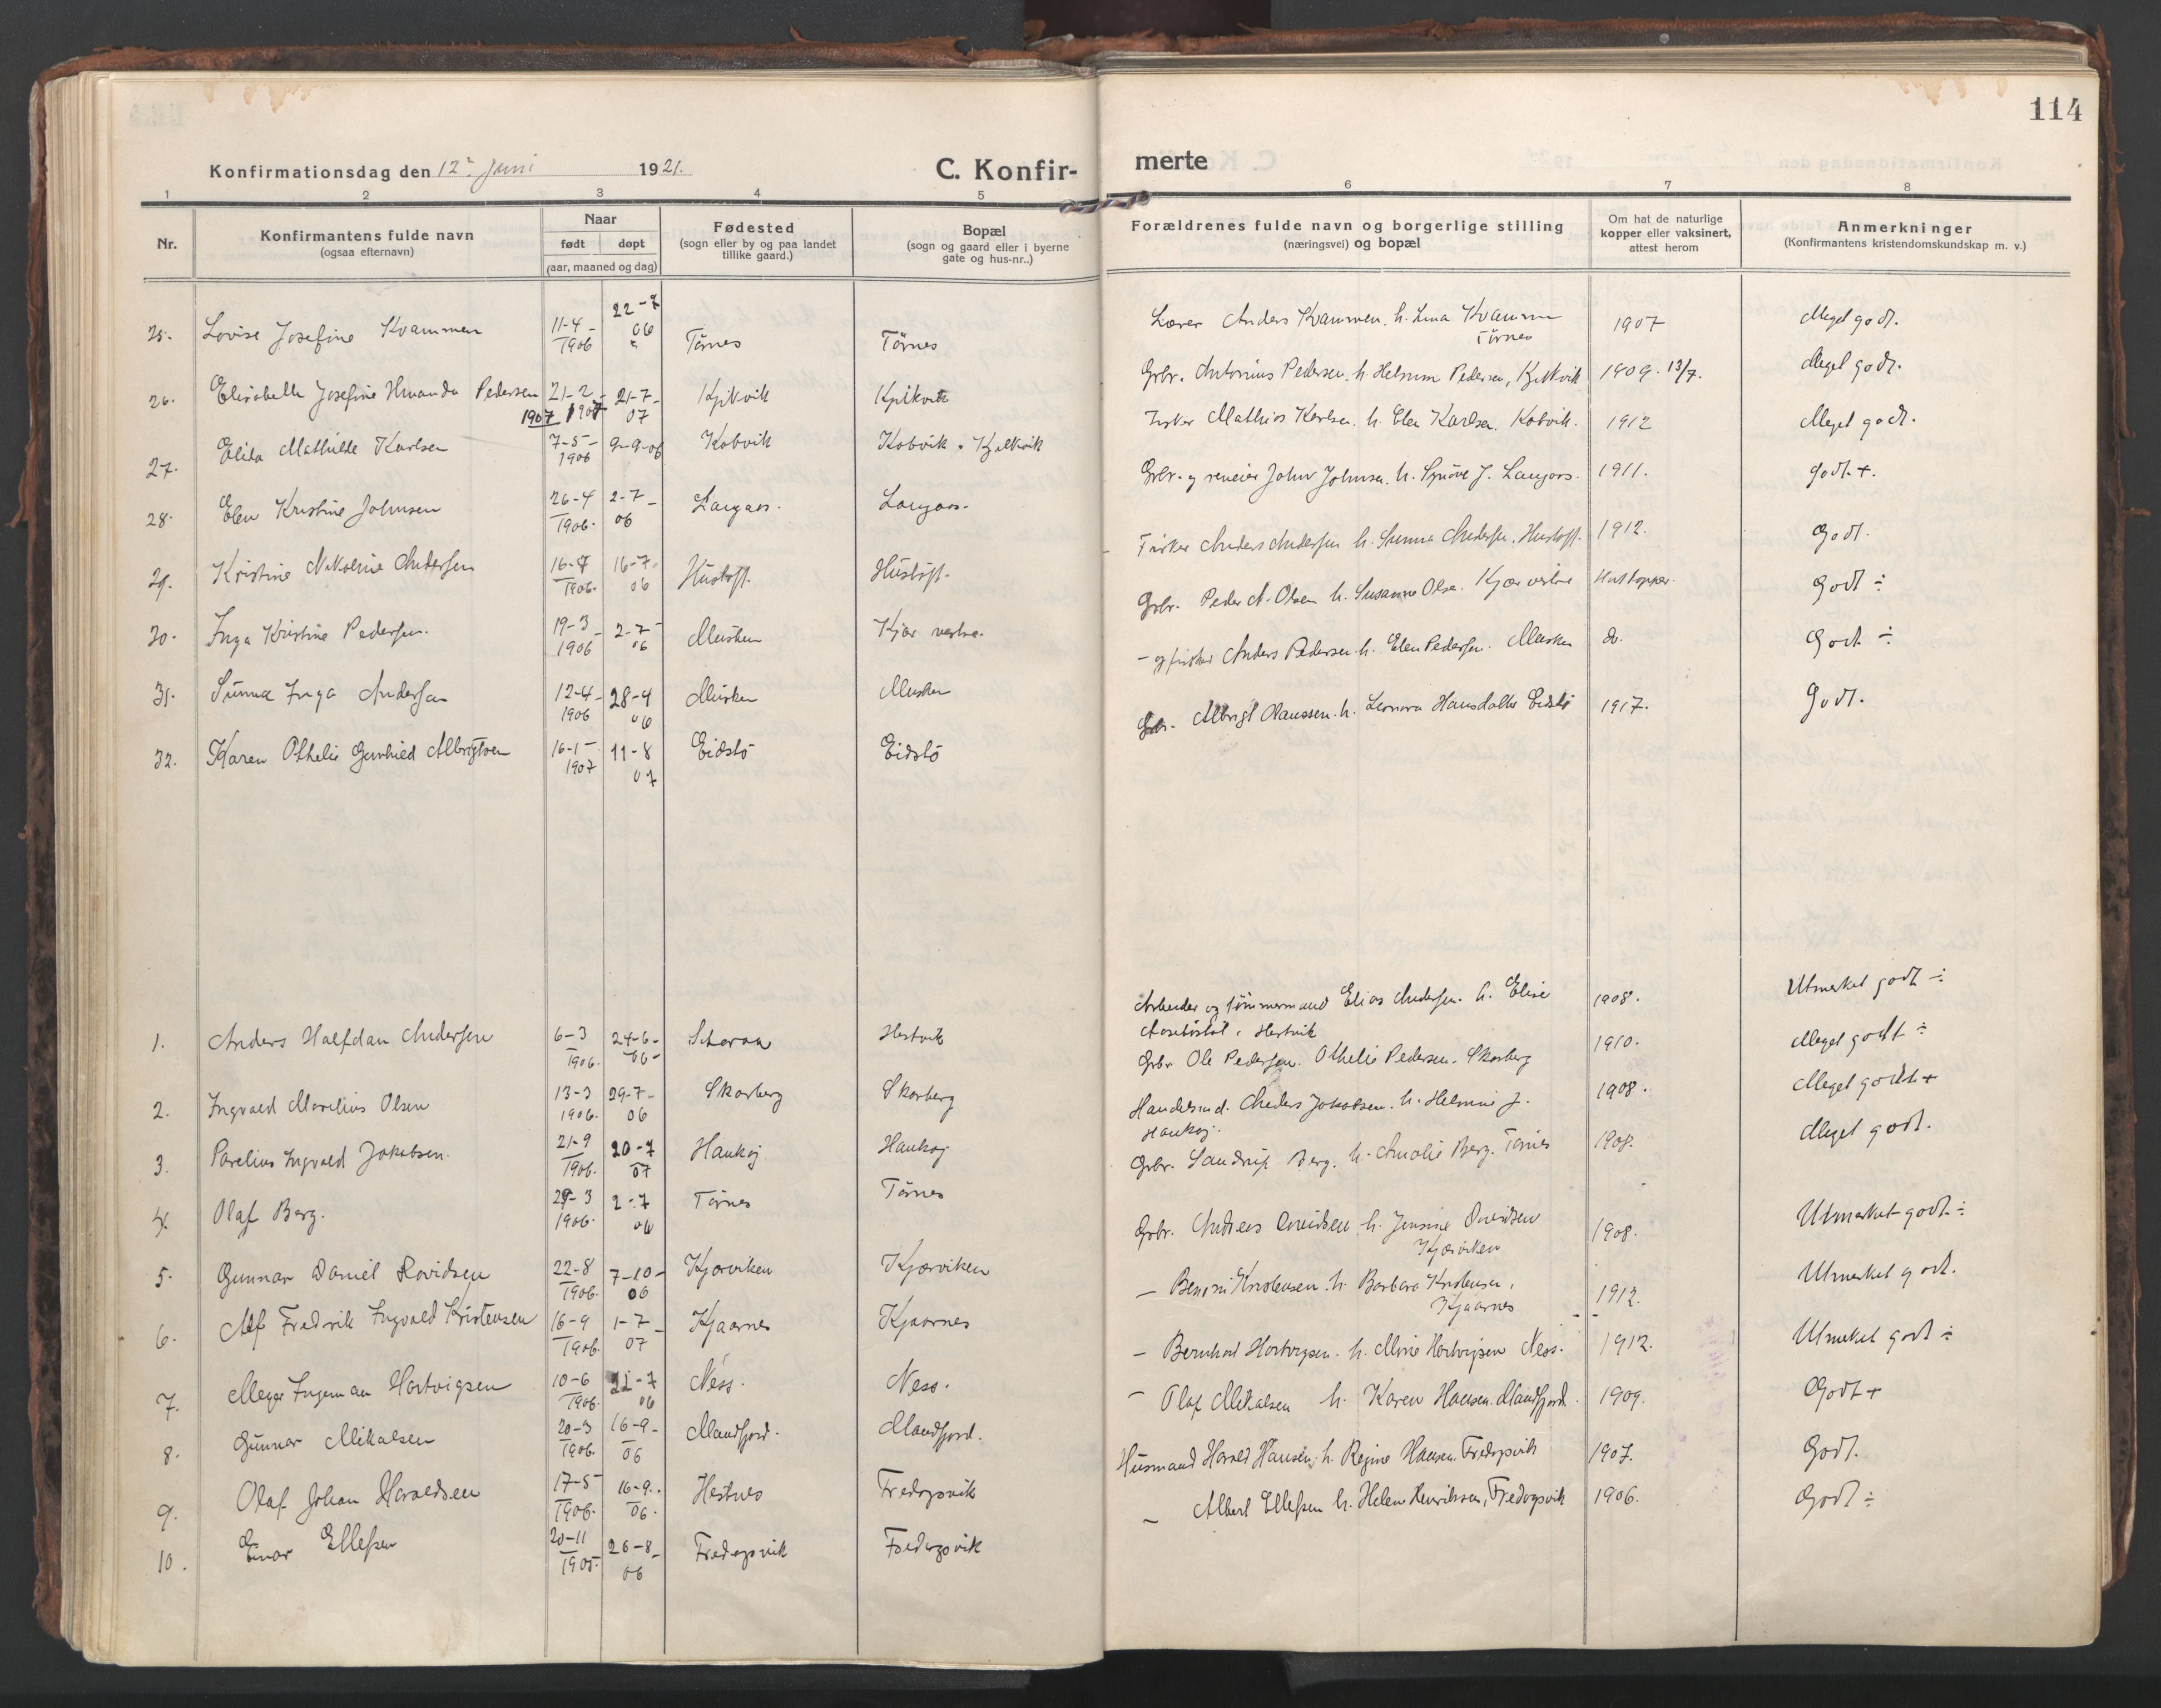 114
Konfirmationsdag den 12' Juni 1921.
C. Konfir-
merte
1 2 3 4 5 6 7 8
Nr.
Konfirmantens fulde navn
(ogsaa efternavn)
Naar
født døpt
(aar, maaned og dag)
Fødested
(sogn eller by og paa landet
tillike gaard.)
Bopæl
(sogn og gaard eller i byerne
gate og hus-nr..)
Forældrenes fulde navn og borgerlige stilling
(næringsvei) og bopæl
Om hat de naturlige
kopper eller vaksinert,
attest herom
Anmerkninger
(Konfirmantens kristendomskundskap m. v.)
25. Lovise Josefine Kvammen 11-4-1906 22-7 06 Tørnes Tørnes Lærer Anders Kvammen. h. Lina Kvamm Tørnes 1907 Meget godt.
26. Elisabeth Josefine Hmanda Pedersen 21-2-1907 1907 21-7-07 Kjelkvik Kjelkvik Grbr. Antonius Pedersen. h. Helmine Pedersen, Kjelkvik 1909. 13/7. Meget godt.
27. Elida Mathilde Karlsen 7-5-1906 9-9-06 Kobvik Kobvik. Kjelkvik Fisker Mathias Karlsen. h. Elen Karlsen. Kobvik. 1912 Meget godt.
28. Elen Kristine Johnsen 26-4 1906. 2-7-06 Langaas. Langaas. Grbr. og reneier John Johnsen. h. Synøve J. Langaas. 1911. Godt +.
29. Kristine Nikoline Andersen 16-4 1906. 16-7-06 Husloft. Husloft. Fisker Anders Andersen h. Sunna Andersen. Husloft. 1912. Godt.
30. Inga Kristine Pedersen. 19-3-1906 2-7-06 Musken Kjær vestre. Grbr. Peder A. Olsen h. Susanne Olsen. Kjær vestre Hat kopper. Godt ÷
31. Sunna Inga Andersen 12-4-1906 28-4 06 Musken Musken - og fisker Anders Pedersen. h. Elen Pedersen. Musken do. Godt ÷
32. Karen Othelie Gunhild Albrigtsen 16-1-1907 11-8 07 Eidslø Eidslø Grbr. Albrigt Olaussen. h. Leonora Hansdatter Eidslø 1917. Godt.
1. Anders Halfdan Andersen 6-3 1906. 24-6-06- Hestvik Arbeider og tømmermand Elias Andersen. h. Elise
Hestvik 1908. Utmerket godt ÷
2. Ingvald Marelius Olsen 13-3 1906. 29-7-06 Skarberg Skarberg Grbr Ole Pedersen. Othelie Pedersen. Skarberg 1910. Meget godt ÷
3. Parelius Ingvald Jakobsen. 21-9 1906. 20-7 07 Haukøj Haukøj Handelsmd. Anders Jakobsen. h. Helmine J.
Haukøj. 1908. Meget godt +
4. Olaf Berg. 29-3 1906. 2-7 06 Tørnes Tørnes Grbr. Sandrup Berg. h. Amalie Berg. Tørnes 1908. Meget godt.
5. Gunnar Daniel Davidsen 22-8 1906. 7-10-06 Kjørviken Kjørviken Grbr. Andreas Davidsen h. Jensine Davidsen
Kjørviken 1908. Utmerket godt ÷
6. Alf Fredrik Ingvald Kristensen 16-9 1906. 1-7-07 Kjaarnes Kjaarnes - Benoni Kristensen. h. Barbara Kristensen,
Kjaarnes 1912. Utmerket godt.
7. Meyer Ingeman Hartvigsen 10-6 1906. 22-7 06 Ness. Ness. - Bernhard Hartvigsen. h. Mine Hartvigsen Ness. 1912. Utmerket godt ÷
8. Gunnar Mikalsen 20-3 1906. 16-9-06 Mandfjord. Mandfjord. - Olaf Mikalsen h. Karen Hansen. Mandfjord. 1909. Godt +
9. Olaf Johan Haraldsen 17-5 1906. 16-9. 06. Hestnes Fredagsvik Husmand Harald Hansen. h. Regine Hansen. Fredagsvik 1907. Godt.
10. Einar Ellefsen 20-11 1905. 26-8-06 Fredagsvik Fredagsvik - Albert Ellefsen h. Helen Henriksen, Fredagsvik 1906. Godt ÷